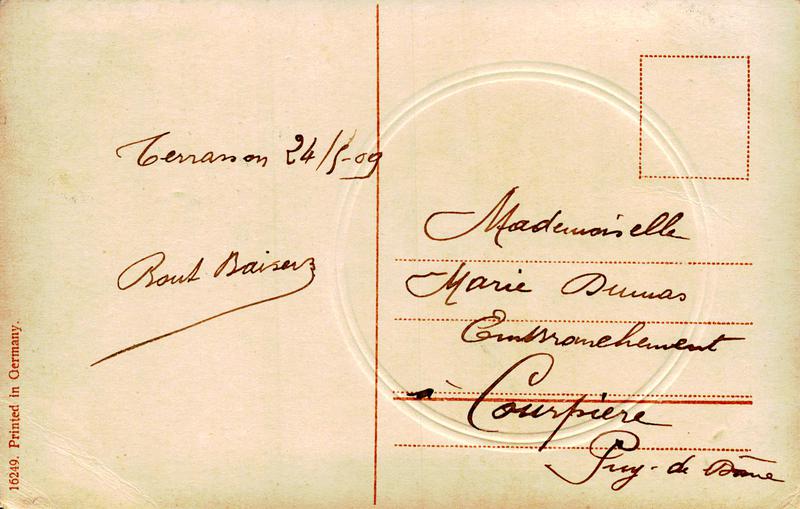 Terrasson 24/5-09
Bont Baisers
Mademoiselle
Marie Dumas
Embranchement
à Courpière
Puy-de Dôme
16249. Printed in Germany.